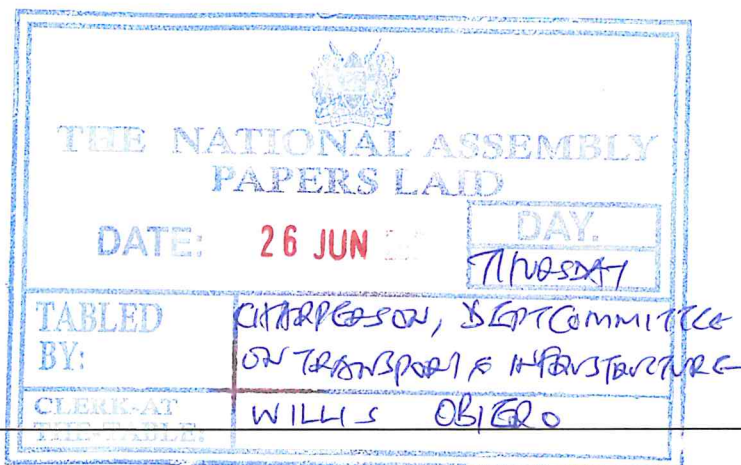 THE NATIONAL ASSEMBLY
PAPERS LAID
DATE: 26 JUN
DAY.
TABLED BY:
CHAIRPERSON, DEPT COMMITTEE
ON TRANSPORT & INFRASTRUCTURE
CLERK-AT
THE-TABLE:
WILLIS OBIERO